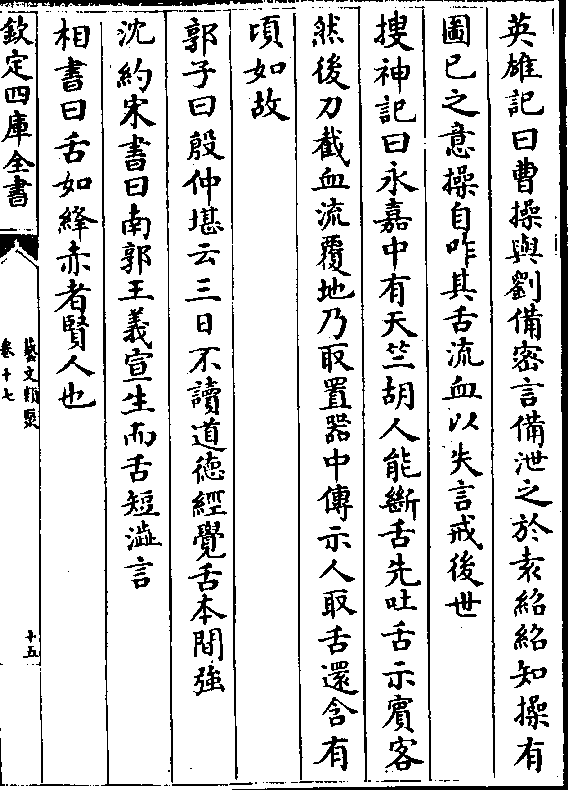 英雄記曰曹操與劉備密言備泄之於袁紹紹知操有
圖已之意操自咋其舌流血以失言戒後世
搜神記曰永嘉中有天竺胡人能斷舌先吐舌示賓客
然後刀截血流覆地乃取置器中傳示人取舌還含有
頃如故
郭子曰殷仲堪云三日不讀道德經覺舌本間強
沈約宋書曰南郭王義宣生而舌短澁言
相書曰舌如絳赤者賢人也
欽定四庫全書
藝文類聚
卷十七
十五